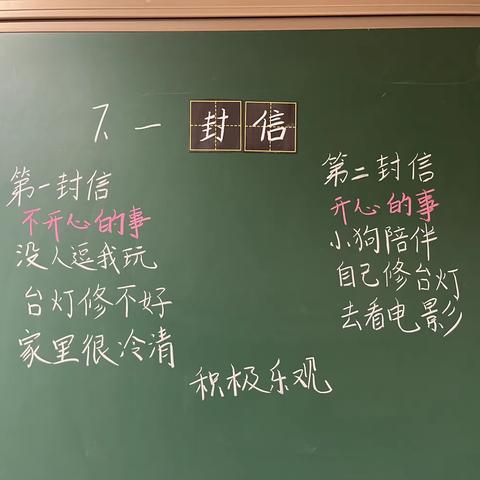 7、一封信
第一封信
不开心的事
没人逗我玩
台灯修不好
家里很冷清
第二封信
开心的事
小狗陪伴
自己修台灯
去看电影
积极乐观